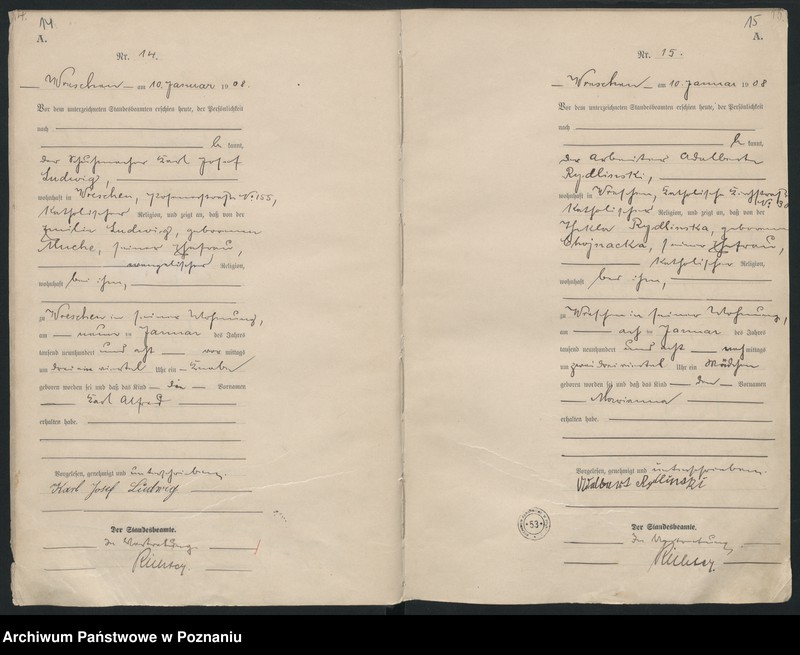 14
A.
Nr. 14.
Wreschen am 10. Januar 1908.
Vor dem unterzeichneten Standesbeamten erschien heute, der Persönlichkeit
nach
kannt,
der Schuhmacher Karl Josef
Ludwig,
wohnhaft in Wreschen, Posenerstraße No 155,
katholischer Religion, und zeigt an, daß von der
Emilie Ludwig, geborenen
Muche, seiner Ehefrau,
evangelischer Religion,
wohnhaft bei ihm,
zu Wreschen in seiner Wohnung,
am neun ten Januar des Jahres
tausend neunhundert und acht vor mittags
um drei ein viertel Uhr ein Knabe
geboren worden sei und daß das Kind die Vornamen
Karl Alfred
erhalten habe.
Vorgelesen, genehmigt und unterschrieben.
Karl Josef Ludwig
Der Standesbeamte.
In Vertretung
15
A.
Nr. 15.
Wreschen am 10. Januar 1908
Vor dem unterzeichneten Standesbeamten erschien heute, der Persönlichkeit
nach
be kannt,
der Arbeiter Adalbert
Rydlinski,
wohnhaft in Wreschen, Katholische Kirchstraße No 30
katholischer Religion, und zeigt an, daß von der
Thekla Rydlinska, geborenen
Chojnacka, seiner Ehefrau,
katholischer Religion,
wohnhaft bei ihm,
zu Wreschen in seiner Wohnung,
am acht ten Januar des Jahres
tausend neunhundert und acht nach mittags
um zwei drei viertel Uhr ein Mädchen
geboren worden sei und daß das Kind den Vornamen
Marianna
erhalten habe.
Vorgelesen, genehmigt und unterschrieben.
Adalbert Rydlinski
Der Standesbeamte.
In Vertretung
53
Archiwum Państwowe w Poznaniu